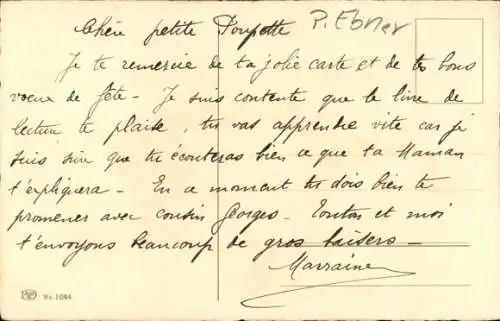 Chère petite Poupette
P. Ebner
Je te remercie de ta jolie carte et de tes bons
voeux de fête - Je suis contente que le livre de
lecture te plaise, tu vas apprendre vite car je
suis sûre que tu écouteras bien ce que ta Maman
t'expliquera - En ce moment tu dois bien te
promener avec cousin Georges. Tonton et moi
t'envoyons beaucoup de gros baisers -
Marraine
No. 1044